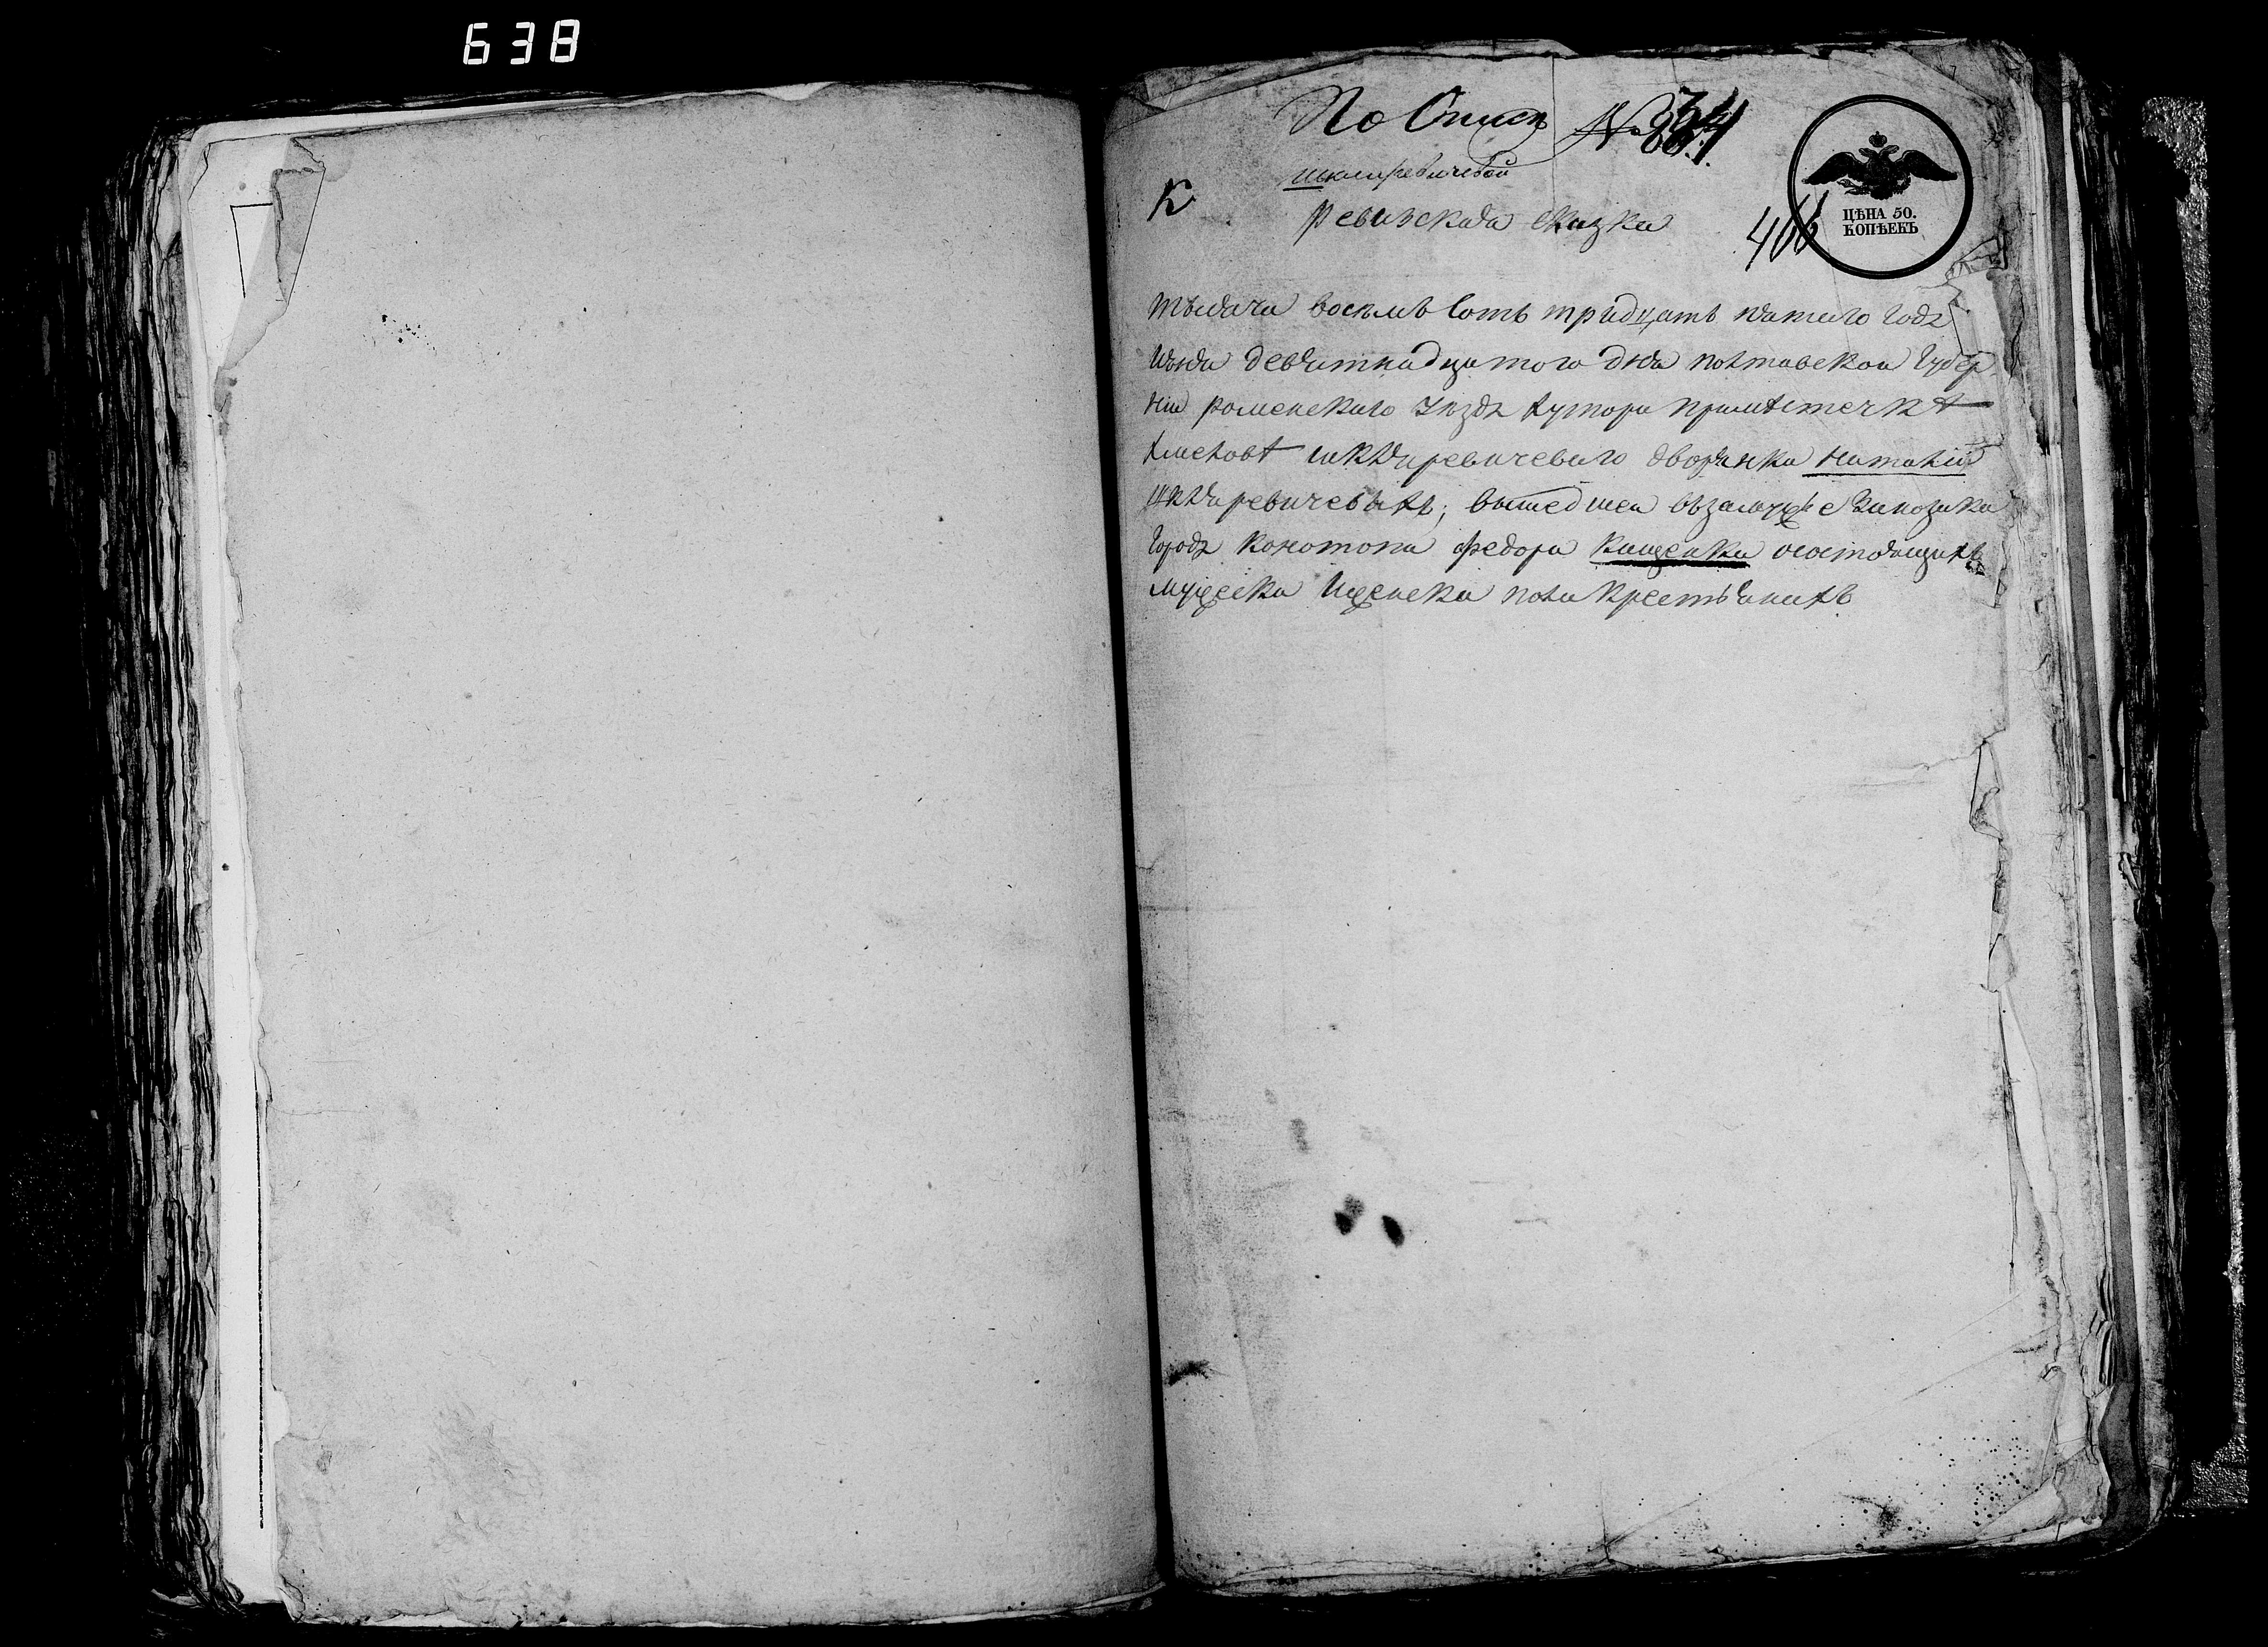 638
По Описи №
шкляревичевой
К
Ревизская сказка
406
ЦѢНА 50.
КОПѢЕКЪ
тысяча восемь сотъ тридцать пятаго года
Июня девятнадцатого дня полтавской Губер
ніи роменскаго уезда хутора приместечкѣ
хмеловѣ шкляревичеваго дворянки наталіи
шкляревичевыхъ; вышедшей възамужъе закозака
Города конотопа Федора кищенка осостоящихъ
мужеска Иженска пола крестьянахъ